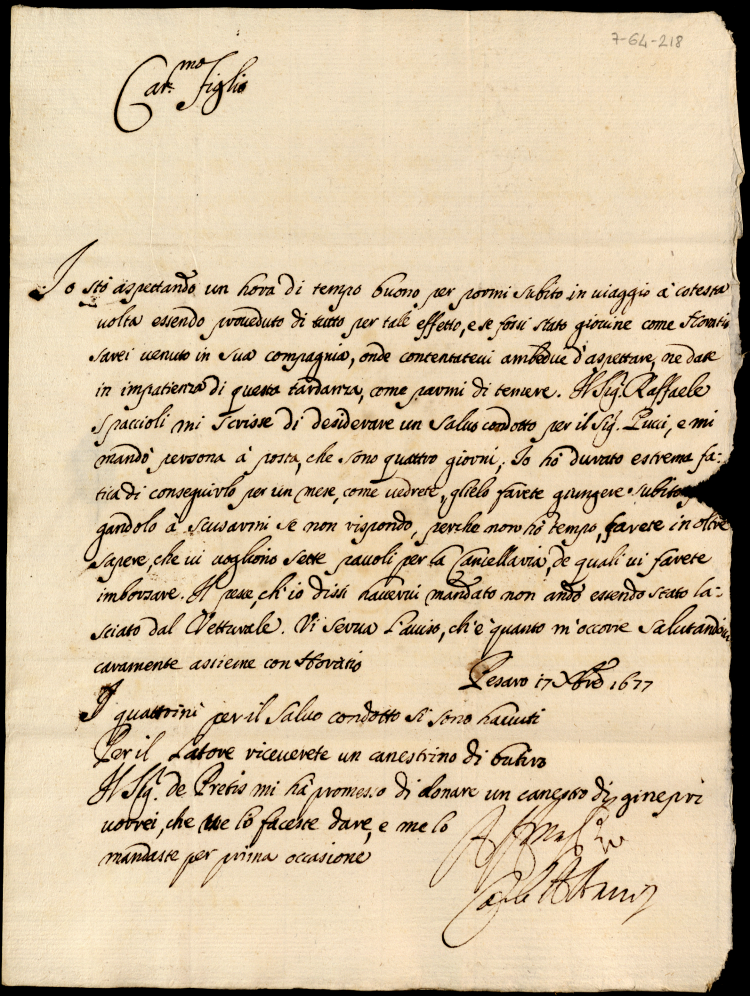 7-64-218
Car.mo figlio
Io stò aspettando un hora di tempo buono per pormi subito in uiaggio à cotesta
uolta essendo proueduto di tutto per tale effetto, e se fossi stato giouine come Horatio
sarei uenuto in sua compagnia, onde contentateui ambedue d'aspettare, ne date
in impatienza di questa tardanza, come parmi di temere. Il Sig.r Raffaele
Spaccioli mi scrisse di desiderare un saluo condotto per il Sig.r Pucci, e mi
mandò persona à posta, che sono quattro giorni; Io hò durato estrema fa-
tica di conseguirlo per un mese, come uedrete, glielo farete giungere subito
gandolo à scusarmi se non rispondo, perche non hò tempo, farete in oltre
sapere, che ui uogliono sette pauoli per la Cancellaria, de quali ui farete
imborsare. Il pese, ch'io dissi hauerui mandato non andò essendo stato la-
sciato dal Vetturale. Vi serua l'auuiso, ch'è quanto m'occorre salutandoui
caramente assieme con Horatio
Pesaro 17 Xbre 1677
I quattrini per il saluo condotto si sono hauuti
Per il Latore riceuerete un canestrino di butiro
Il Sig.r de Pretis mi hà promesso di donare un canestro di ginepri
uorrei, che ue lo faceste dare, e me lo
mandaste per prima occasione
Carlo Albani